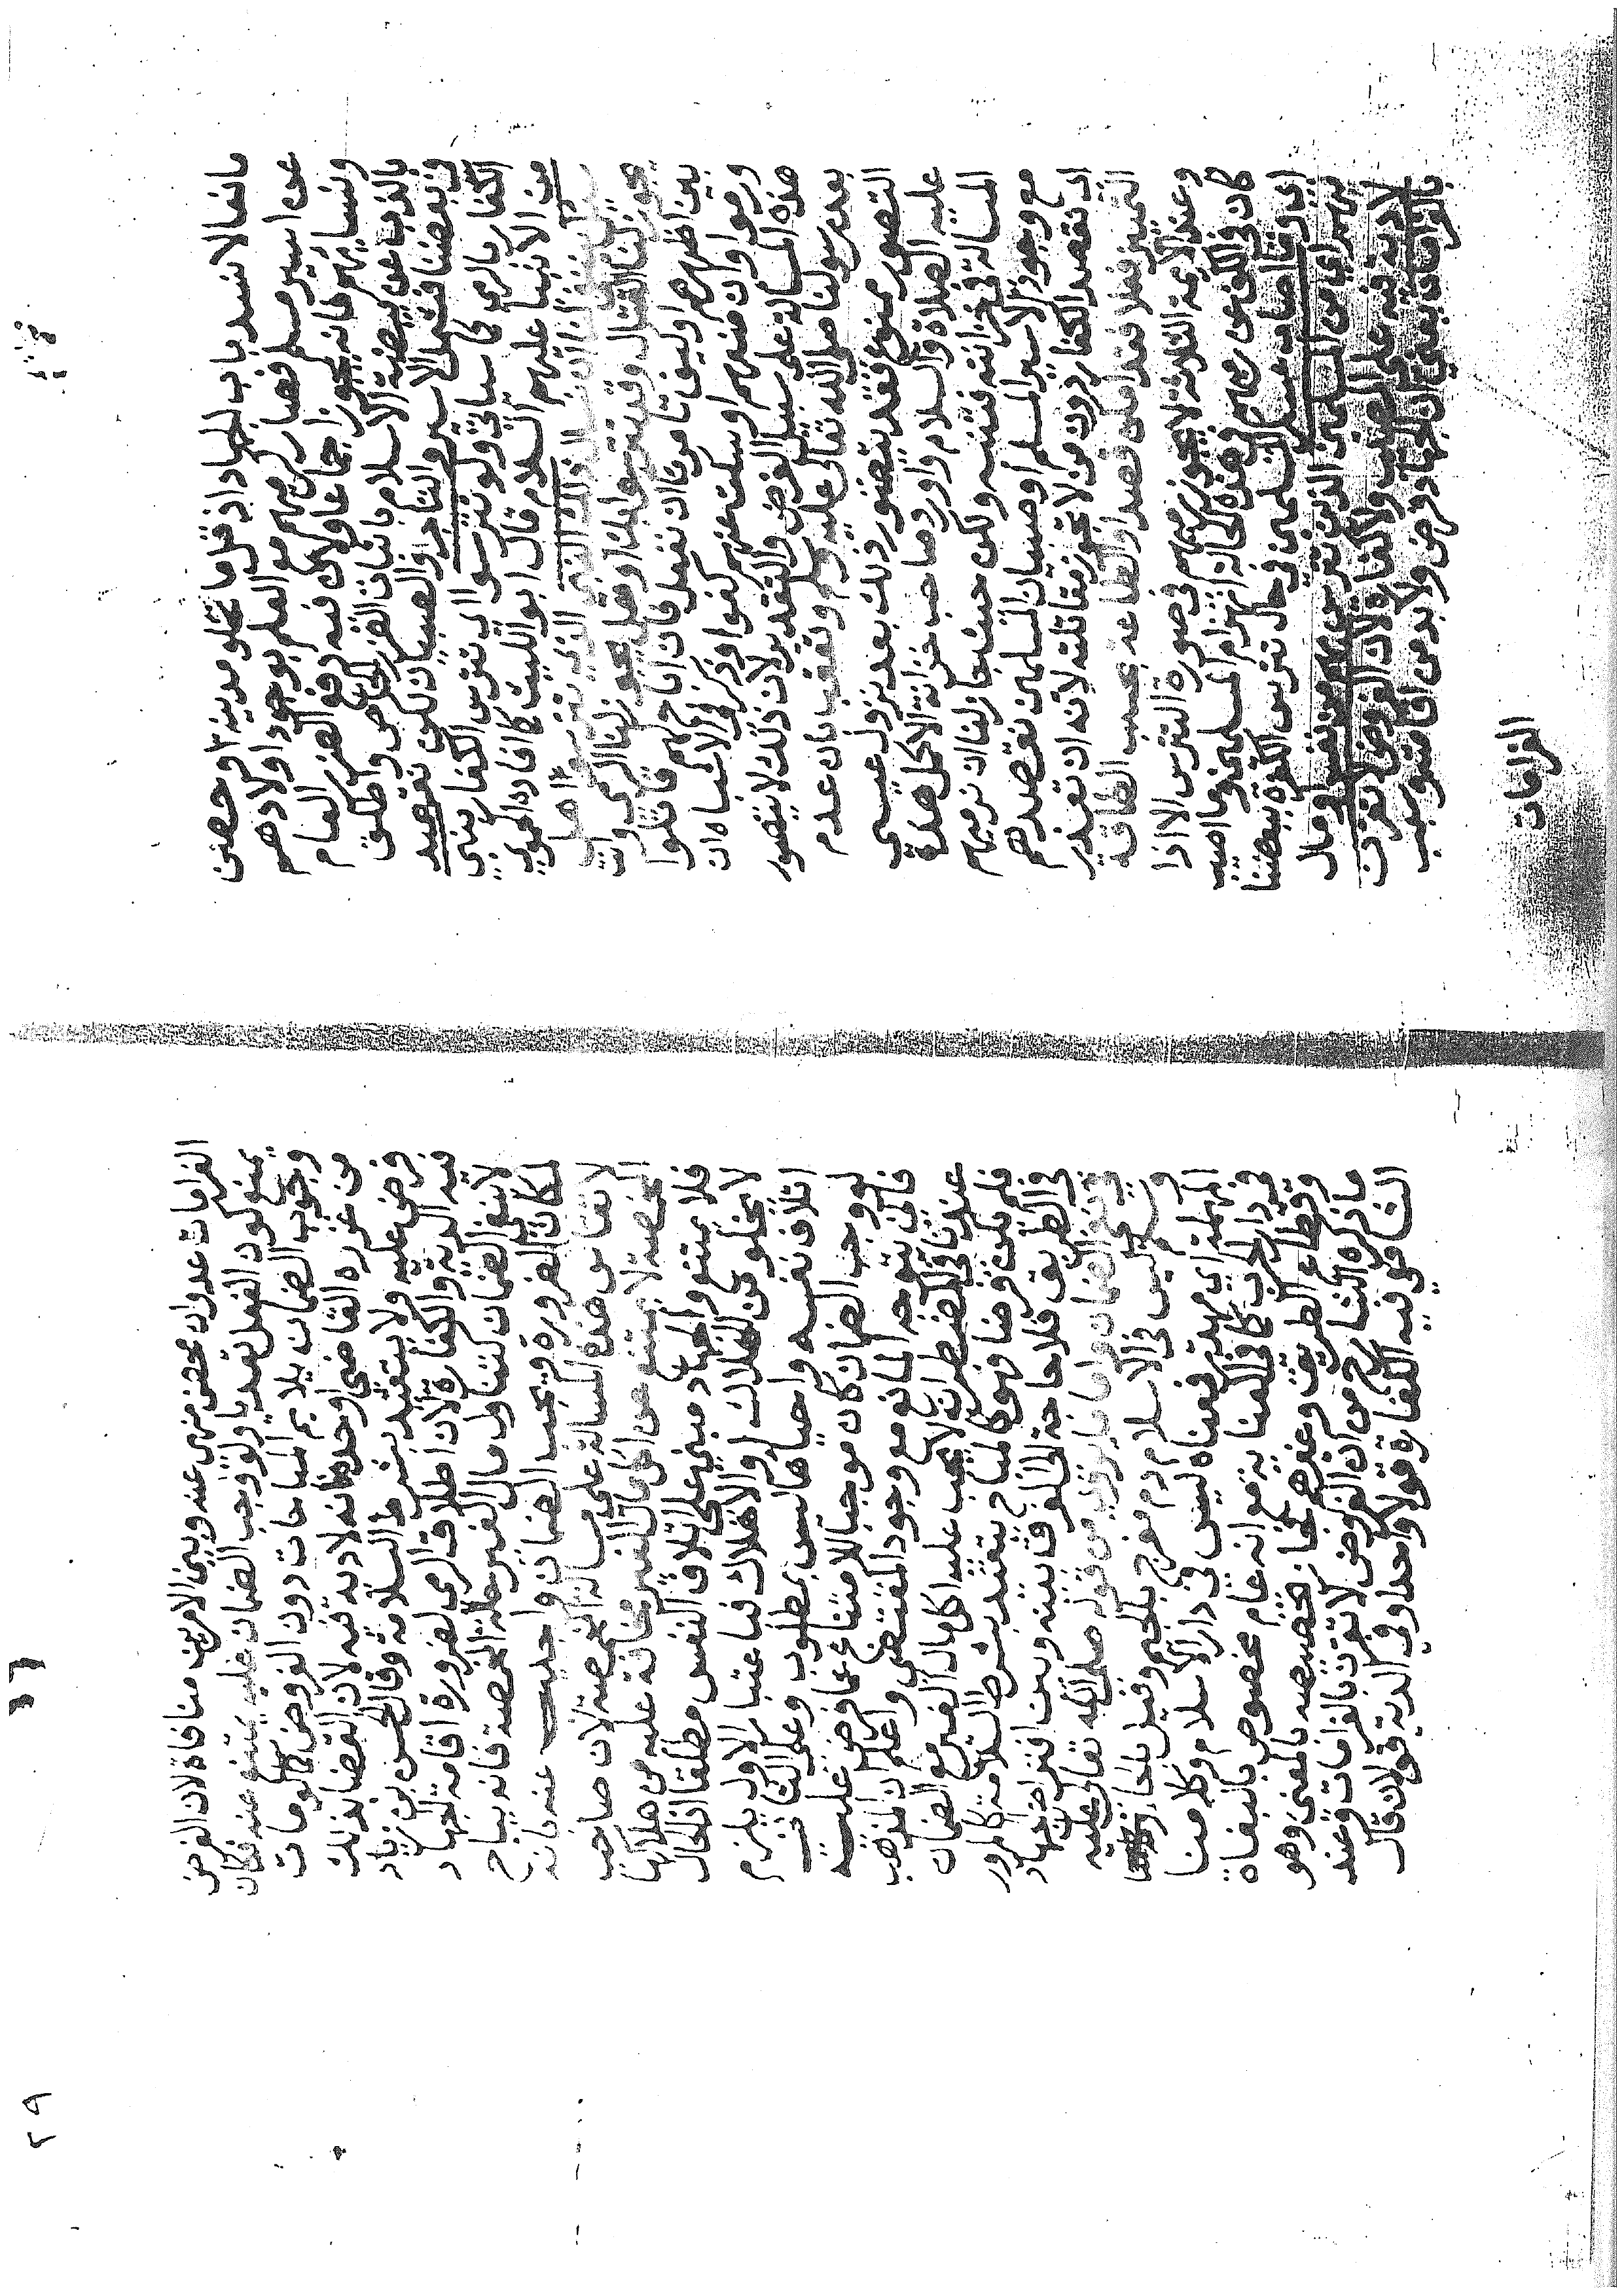 مانعا لانسد باب الجهاد اذ قل ما تخلو مدينة او حصن
عن اسير مسلم فصار كرميهم مع العلم بوجود اولادهم
ونسايهم فانه يجوز اجماعا ولان فيه دفع الضرر العام
بالذب عن بيضة الاسلام باثبات الضرر الخاص واطلق
في بعضنا فشمل الاسير والتاجر والصبيان لكن نقصد
الكفار بالرمي كما سياتي ولو تترسوا اي تترس الكفار بنبي
من الانبيا عليهم السلام قال ابو الليث كما افاده الحموي
يجوز لنا القتال وقد تترسوا بنبينا وهل يجوز لنا الرمي
بين اظهرهم او ليف تامرنا ان نفعل فان اباحهم قاتلوا
ورموا وان منعهم او سكت عنهم كفوا وذكر في الاشباه ان
هذه المسالة على سبيل الفرض والتقدير لان ذلك لا يتصور
بعد رسولنا صلى الله تعالى عليه وسلم وتعقب بان عدم
التصور ممنوع فقد يتصور ذلك بعد نزول عيسى
عليه الصلاة والسلام واورد صاحب خزانة الاكمل هذه
المسالة في خزانته فتنبه ولكن حيث جاز لنا ان نرميهم
مع وجود الاسير المسلم او صبيان المسلمين نقصدهم
اي نقصد الكفار دون من لا تجوز مقاتلته لانه ان تعذر
التمييز فعلا فقد امكن قصدا والطاعة بحسب الطاقة
وعند الايمة الثلاثة لا يجوز رميهم في صورة التترس الا اذا
كان في الكف عن رميهم في هذه الحالة انهزام المسلمين وما اصيب
اي وما اصاب عسكر المسلمين في حال تترس الكفرة ببعضنا
منهم اي من المسلمين الذين تترس بهم من نفس او مال
لا دية فيه على المصيب ولا كفارة لان الفروض لا تقرن
بالغرامات يعني ان الجهاد فرض ولا بد من اقامته وسبب
الغرامات
الغرامات عدوان محض منهى عنه وبين الامرين منافاة لان الفرض
يمنع كون الفعل تعديا ولو وجب الضمان عليه يمتنع منه فكان
وجوب الضمان يلايم المباحات دون الفروض كما لو مات
من عزره القاضي او حده فانه لا دية فيه لان القضا بذلك
فرض عليه ولا يتقيد بشرط السلامة وقال الحسن بن زياد
فيه الدية والكفارة لان اطلاق الرمي لضرورة اقامة الجهاد
لا ينفي الضمان كتناول مال الغير حالة المخمصة فانه يباح
لمكان الضرورة ويجب الضمان واجيب عنه بانه
لا تقاس هذه المسالة على مسالة المخمصة لان صاحب
المخمصة لا يمتنع عن اكل مال الغير مخافة عليه من هلاكها
فلا يمتنع والجهاد مبني على اتلاف النفس مطلقا اذ الحال
لا يخلو من الهلاك او الاهلاك فباعتبار الاول يلزم
اتلاف نفسه واحياها ليس بمطلوب وعلى الثاني
لو وجب الضمان كان موجبا للامتناع عما فرض عليه
فاني يتوجه المانع مع وجود المقتضى واعلم ان المذهب
عندنا في المضطر انه لا يجب عليه اكل مال الغير مع الضمان
فلم يكن فرضا فهو كالمباح يتقيد بشرط السلامة كالمرور
في الطريق فلا حاجة الى الفرق بينه وبين افتراض الجهاد
من قوله صلى الله تعالى عليه
وسلم ليس في الاسلام دم مفرج بالجيم وقيل بالحاء
المهملة اي مهدر فمعناه ليس في دار الاسلام وكلامنا
في دار الحرب كما في العناية مع انه عام مخصوص بالبغاة
وقطاع الطريق وغيرهم فجاز تخصيصه بالمعنى وهو
ما ذكره الشارح من ان الفروض لا تقرن بالغرامات وعند
الشافعي فيه الكفارة قولا واحدا وفي الدية قولان قال
٢٩